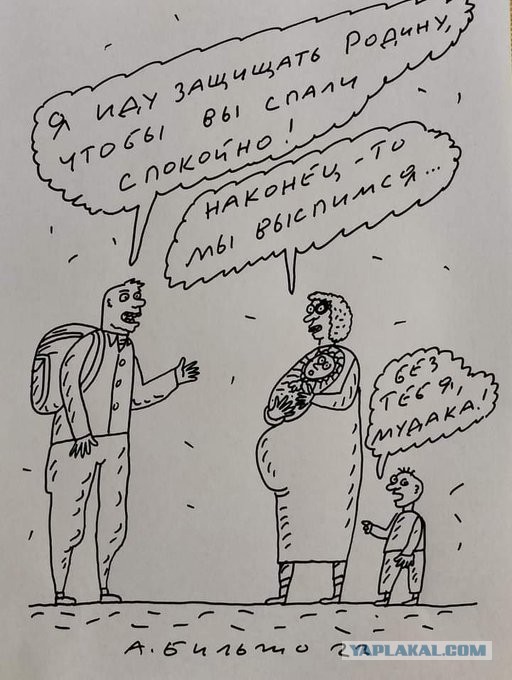 Я ИДУ ЗАЩИЩАТЬ РОДИНУ,
ЧТОБЫ ВЫ СПАЛИ
СПОКОЙНО!
НАКОНЕЦ-ТО
МЫ ВЫСПИМСЯ...
БЕЗ
ТЕБЯ,
МУДАКА!
А. БИЛЬЖО 22
YAPLAKAL.COM